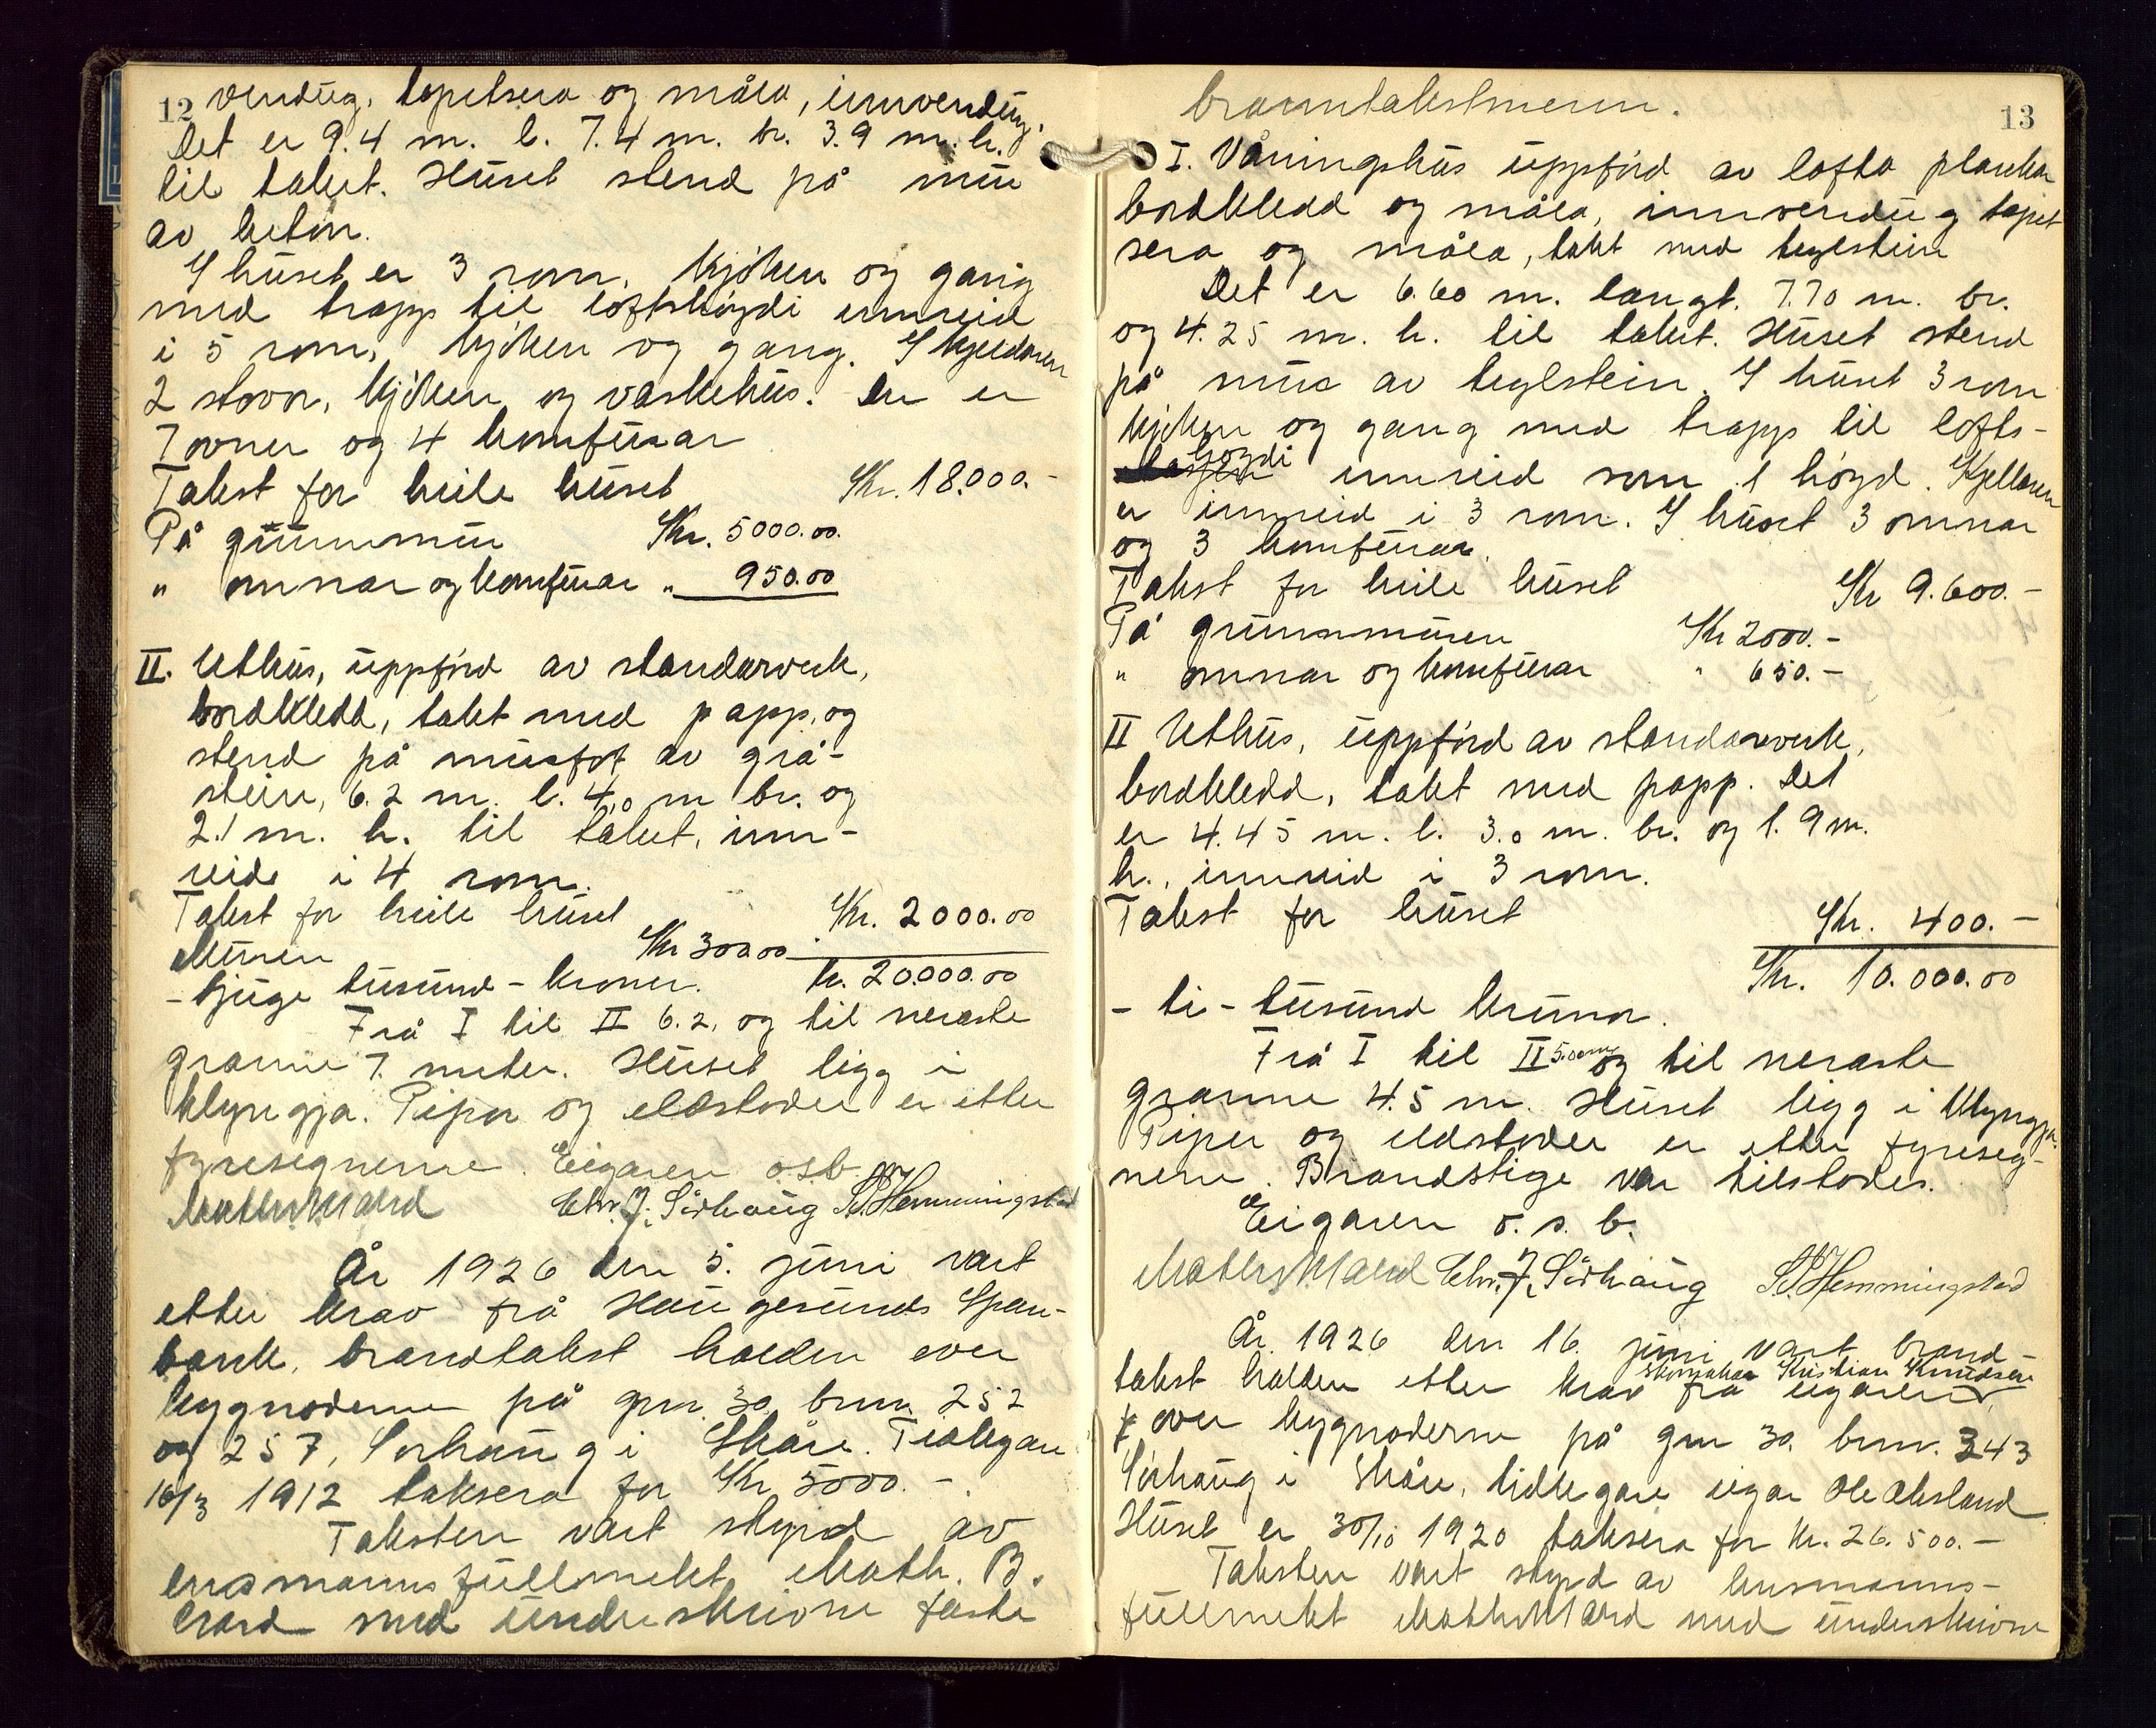 12 vendug, tapetsera og måla, innvendug.
Det er 9.4 m. l. 7.4 m. br. 3.9 m. h.
til taket. Huset stend på mur
av betong.
I huset er 3 rom, kjøken og gang
med trapp til loftshøgdi innreid
i 5 rom, kjøken og gang. I kjeldaren
2 stovor, kjøken og vaskehus. Der er
7 ovner og 4 komfurar
Takst for heile huset Kr. 18.000.-
På grunnmur Kr. 5000.00.
" omnar og komfurar " 950.00
II. Uthus, uppførd av standarverk,
bordkledd, takt med papp, og
stend på murfot av grå-
stein, 6.2 m. l. 4.0 m br. og
2.1 m. h. til taket, inn-
reid i 4 rom.
Takst for heile huset Kr. 2000.00
Muren Kr 300.00
- tjuge tusund - kroner. kr. 20.000.00
Frå I til II 6.2, og til neraste
granne 7 meter. Huset ligg i
klyngja. Pipor og eldstoder er etter
fyresegnerne. Eigaren o.s.b.
Chr. J. Sørhaug S. Hemmingstad
År 1926 den 5. juni vart
etter krav frå Haugesunds Spare-
bank, brandtakst halden over
bygnoderne på gnr. 30 bnr. 252
og 257, Sørhaug i Skåre. Tidlegare
16/3 1912 taksera for Kr 5000.-
Taksten vart styrd av
lensmannsfullmekt Math. B.
Oard med underskrivne faste
branntakstmenn. 13
I. Våningshus uppførd av lofta plankar
bordkledd og måla, innvendug tapet
sera og måla, takt med teglstein
Det er 6.60 m. langt. 7.70 m. br.
og 4.25 m. h. til taket. Huset stend
på mur av teglstein. I huset 3 rom
kjøken og gang med trapp til lofts-
høgdi innreid som 1 høgd. Kjellaren
er innreid i 3 rom. I huset 3 omnar
og 3 komfurar.
Takst for heile huset Kr 9.600.-
På grunnmuren Kr 2000.-
" omnar og komfurar " 650.-
II Uthus, uppførd av standarverk,
bordkledd, takt med papp. Det
er 4.45 m. l. 3.0 m. br. og 1.9 m.
h., innreid i 3 rom.
Takst for huset Kr. 400.-
Kr. 10.000.00
- ti - tusund krunor.
Frå I til II 5.00 m og til neraste
granne 4.5 m. Huset ligg i klyngja.
Piper og eldstoder er etter fyreseg-
nerne. Brandstige var tilstodes.
Eigaren o. s. b.
Chr. J. Sørhaug S. Hemmingstad
År 1926 den 16. juni vart brand-
takst halden etter krav frå eigaren skomakar Kristian Knudsen
over bygnoderne på gnr 30. bnr. 343
Sørhaug i Skåre, tidlegare eigar Ole Aksland
Huset er 30/10 1920 taksera for Kr. 26.500.-
Taksten vart styrd av lensmanns-
fullmekt med underskrivne